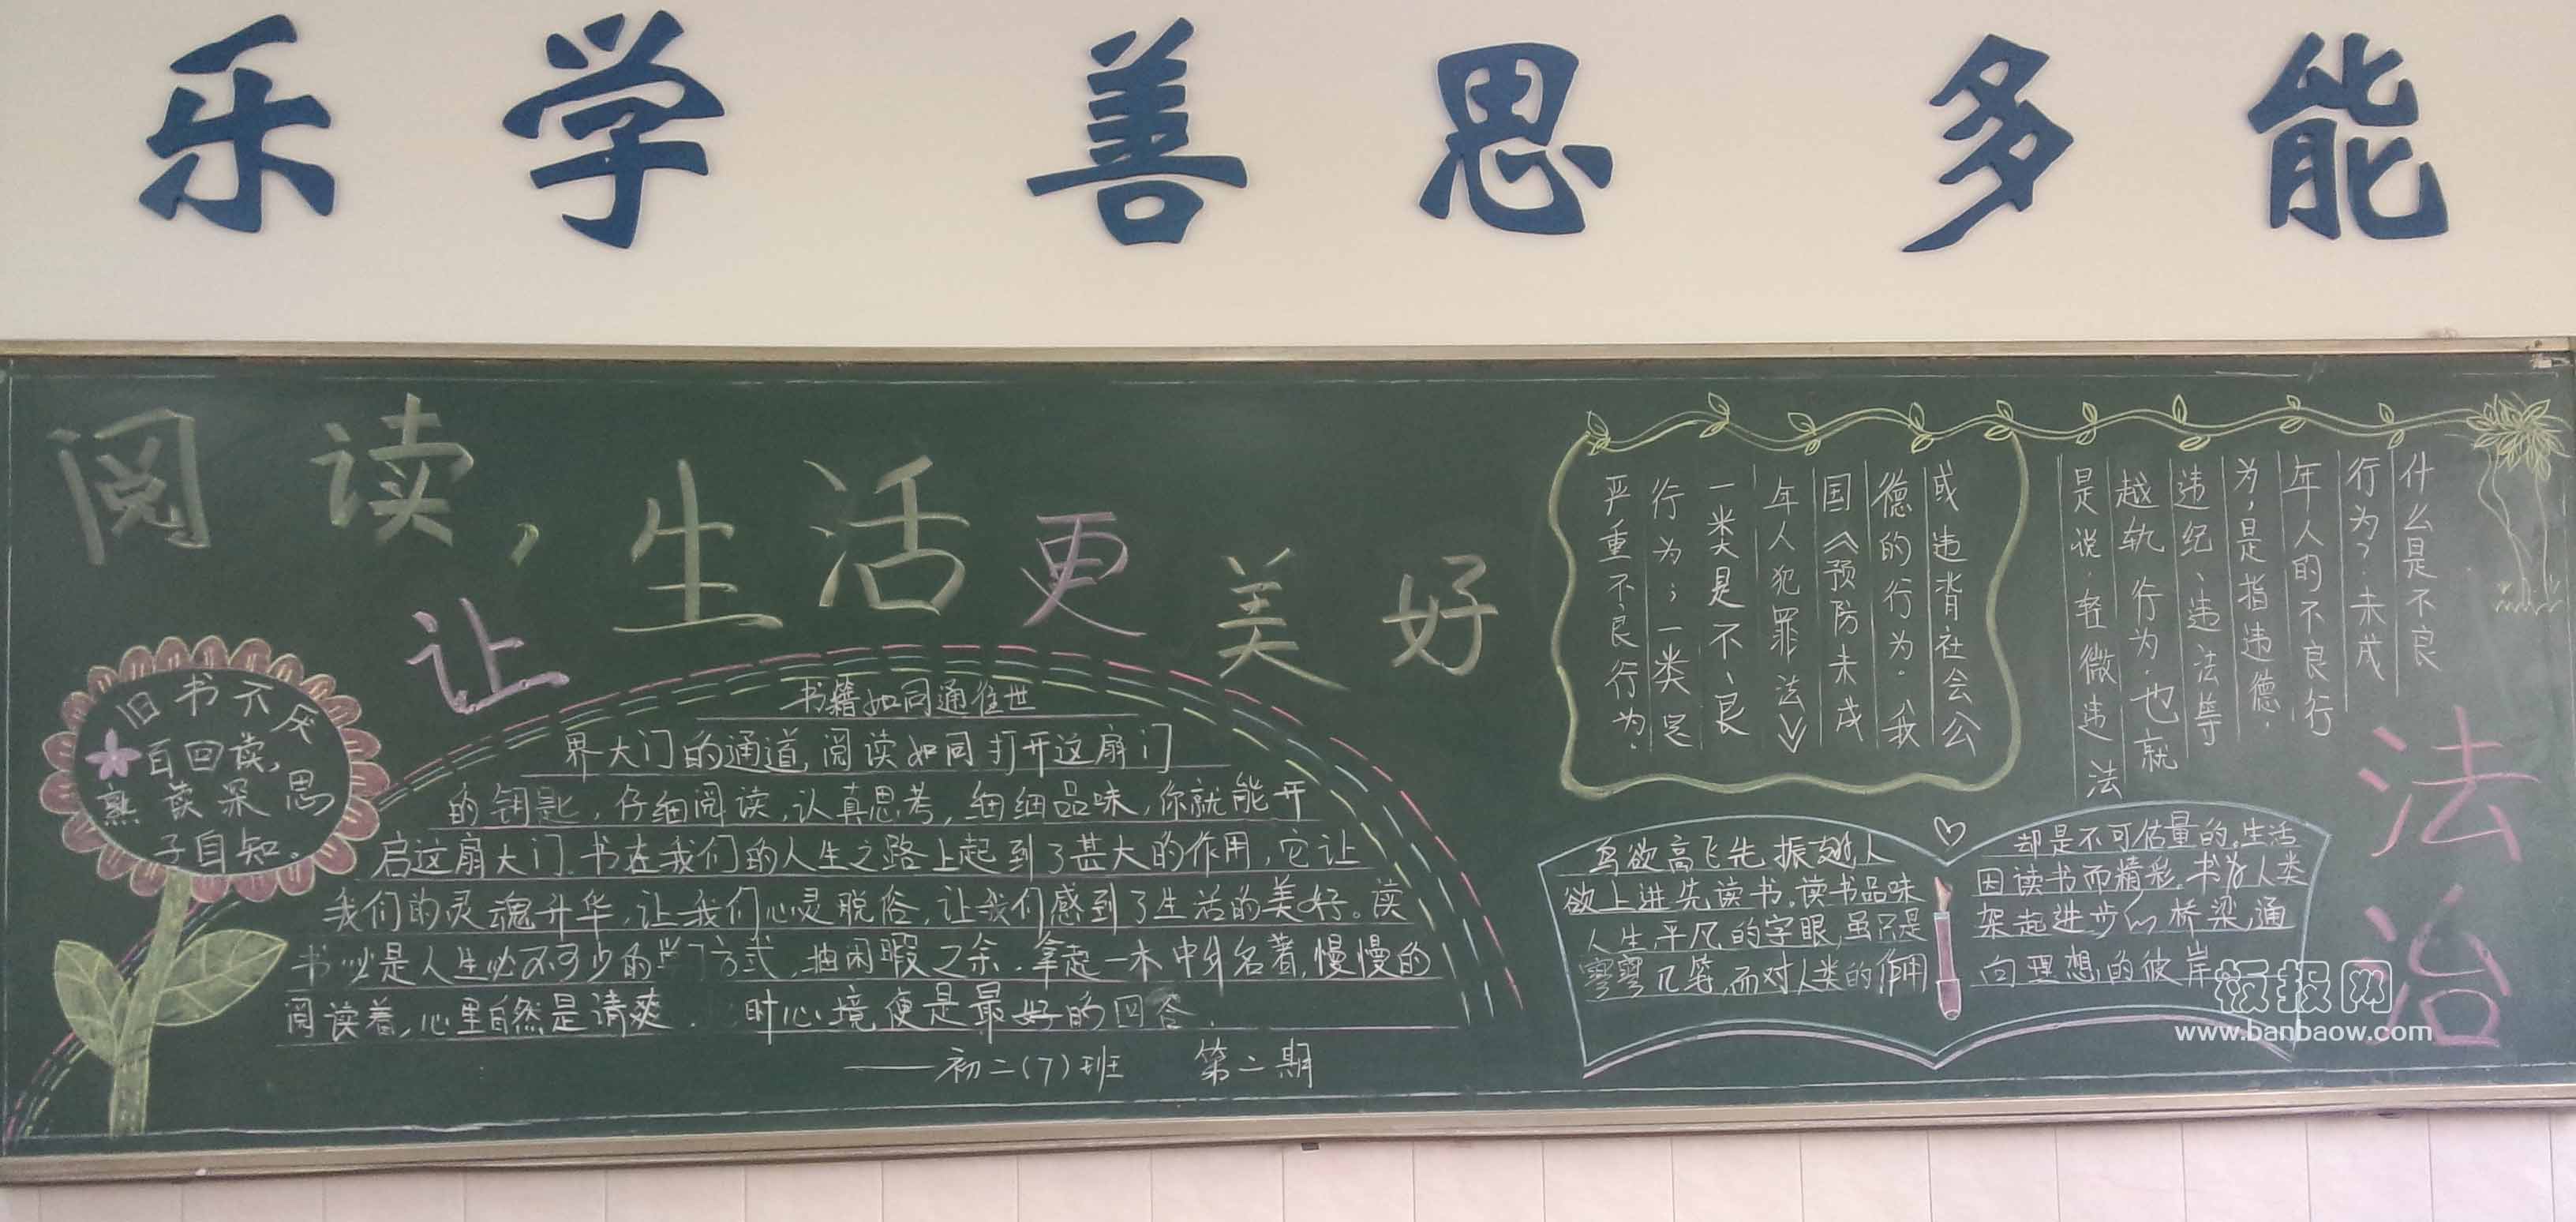 乐学 善思 多能
阅读，
让生活更美好
旧书不厌
百回读，
熟读深思
子自知。
书籍如同通往世
界大门的通道，阅读如同打开这扇门
的钥匙，仔细阅读，认真思考，细细品味，你就能开
启这扇大门．书在我们的人生之路上起到了甚大的作用，它让
我们的灵魂升华，让我们心灵脱俗，让我们感到了生活的美好。读
书必是人生必不可少的 方式．抽闲暇之余，拿起一本中外名著，慢慢的
阅读着，心里自然是清爽． 时心境便是最好的回答．
——初二（7）班 第二期
什么是不良
行为？未成
年人的不良行
为，是指违德，
违纪、违法等
越轨行为．也就
是说．轻微违法
或违背社会公
德的行为。我
国《预防未成
年人犯罪法》
一类是不良
行为；一类是
严重不良行为．
法治
鸟欲高飞先振翅，人
欲上进先读书．读书品味
人生．平凡的字眼，虽只是
寥寥几笔，而对人类的作用
却是不可估量的．生活
因读书而精彩．书为人类
架起进步的桥梁，通
向理想的彼岸
板报网
www.banbaow.com